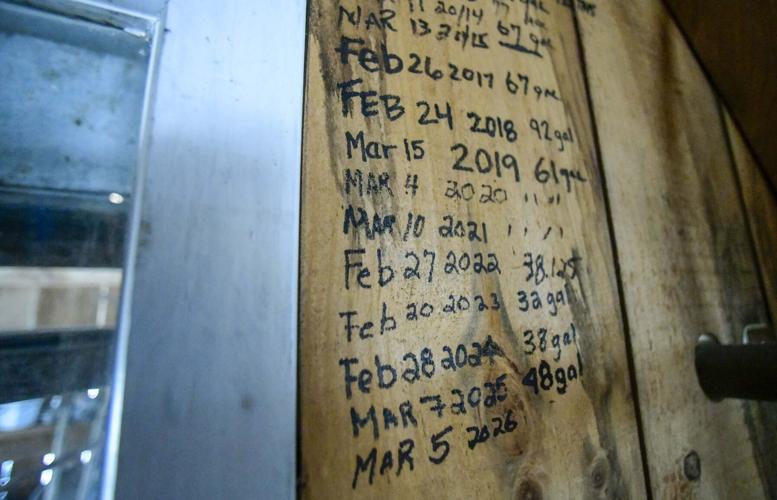 11 20/14
MAR 13 2015 67 gal
Feb 26 2017 67 gal
FEB 24 2018 92 gal
Mar 15 2019 61 gal
MAR 4 2020 " "
MAR 10 2021 " "
Feb 27 2022 38.125
Feb 20 2023 32 gal
Feb 28 2024 38 gal
MAR 7 2025 48 gal
MAR 5 2026